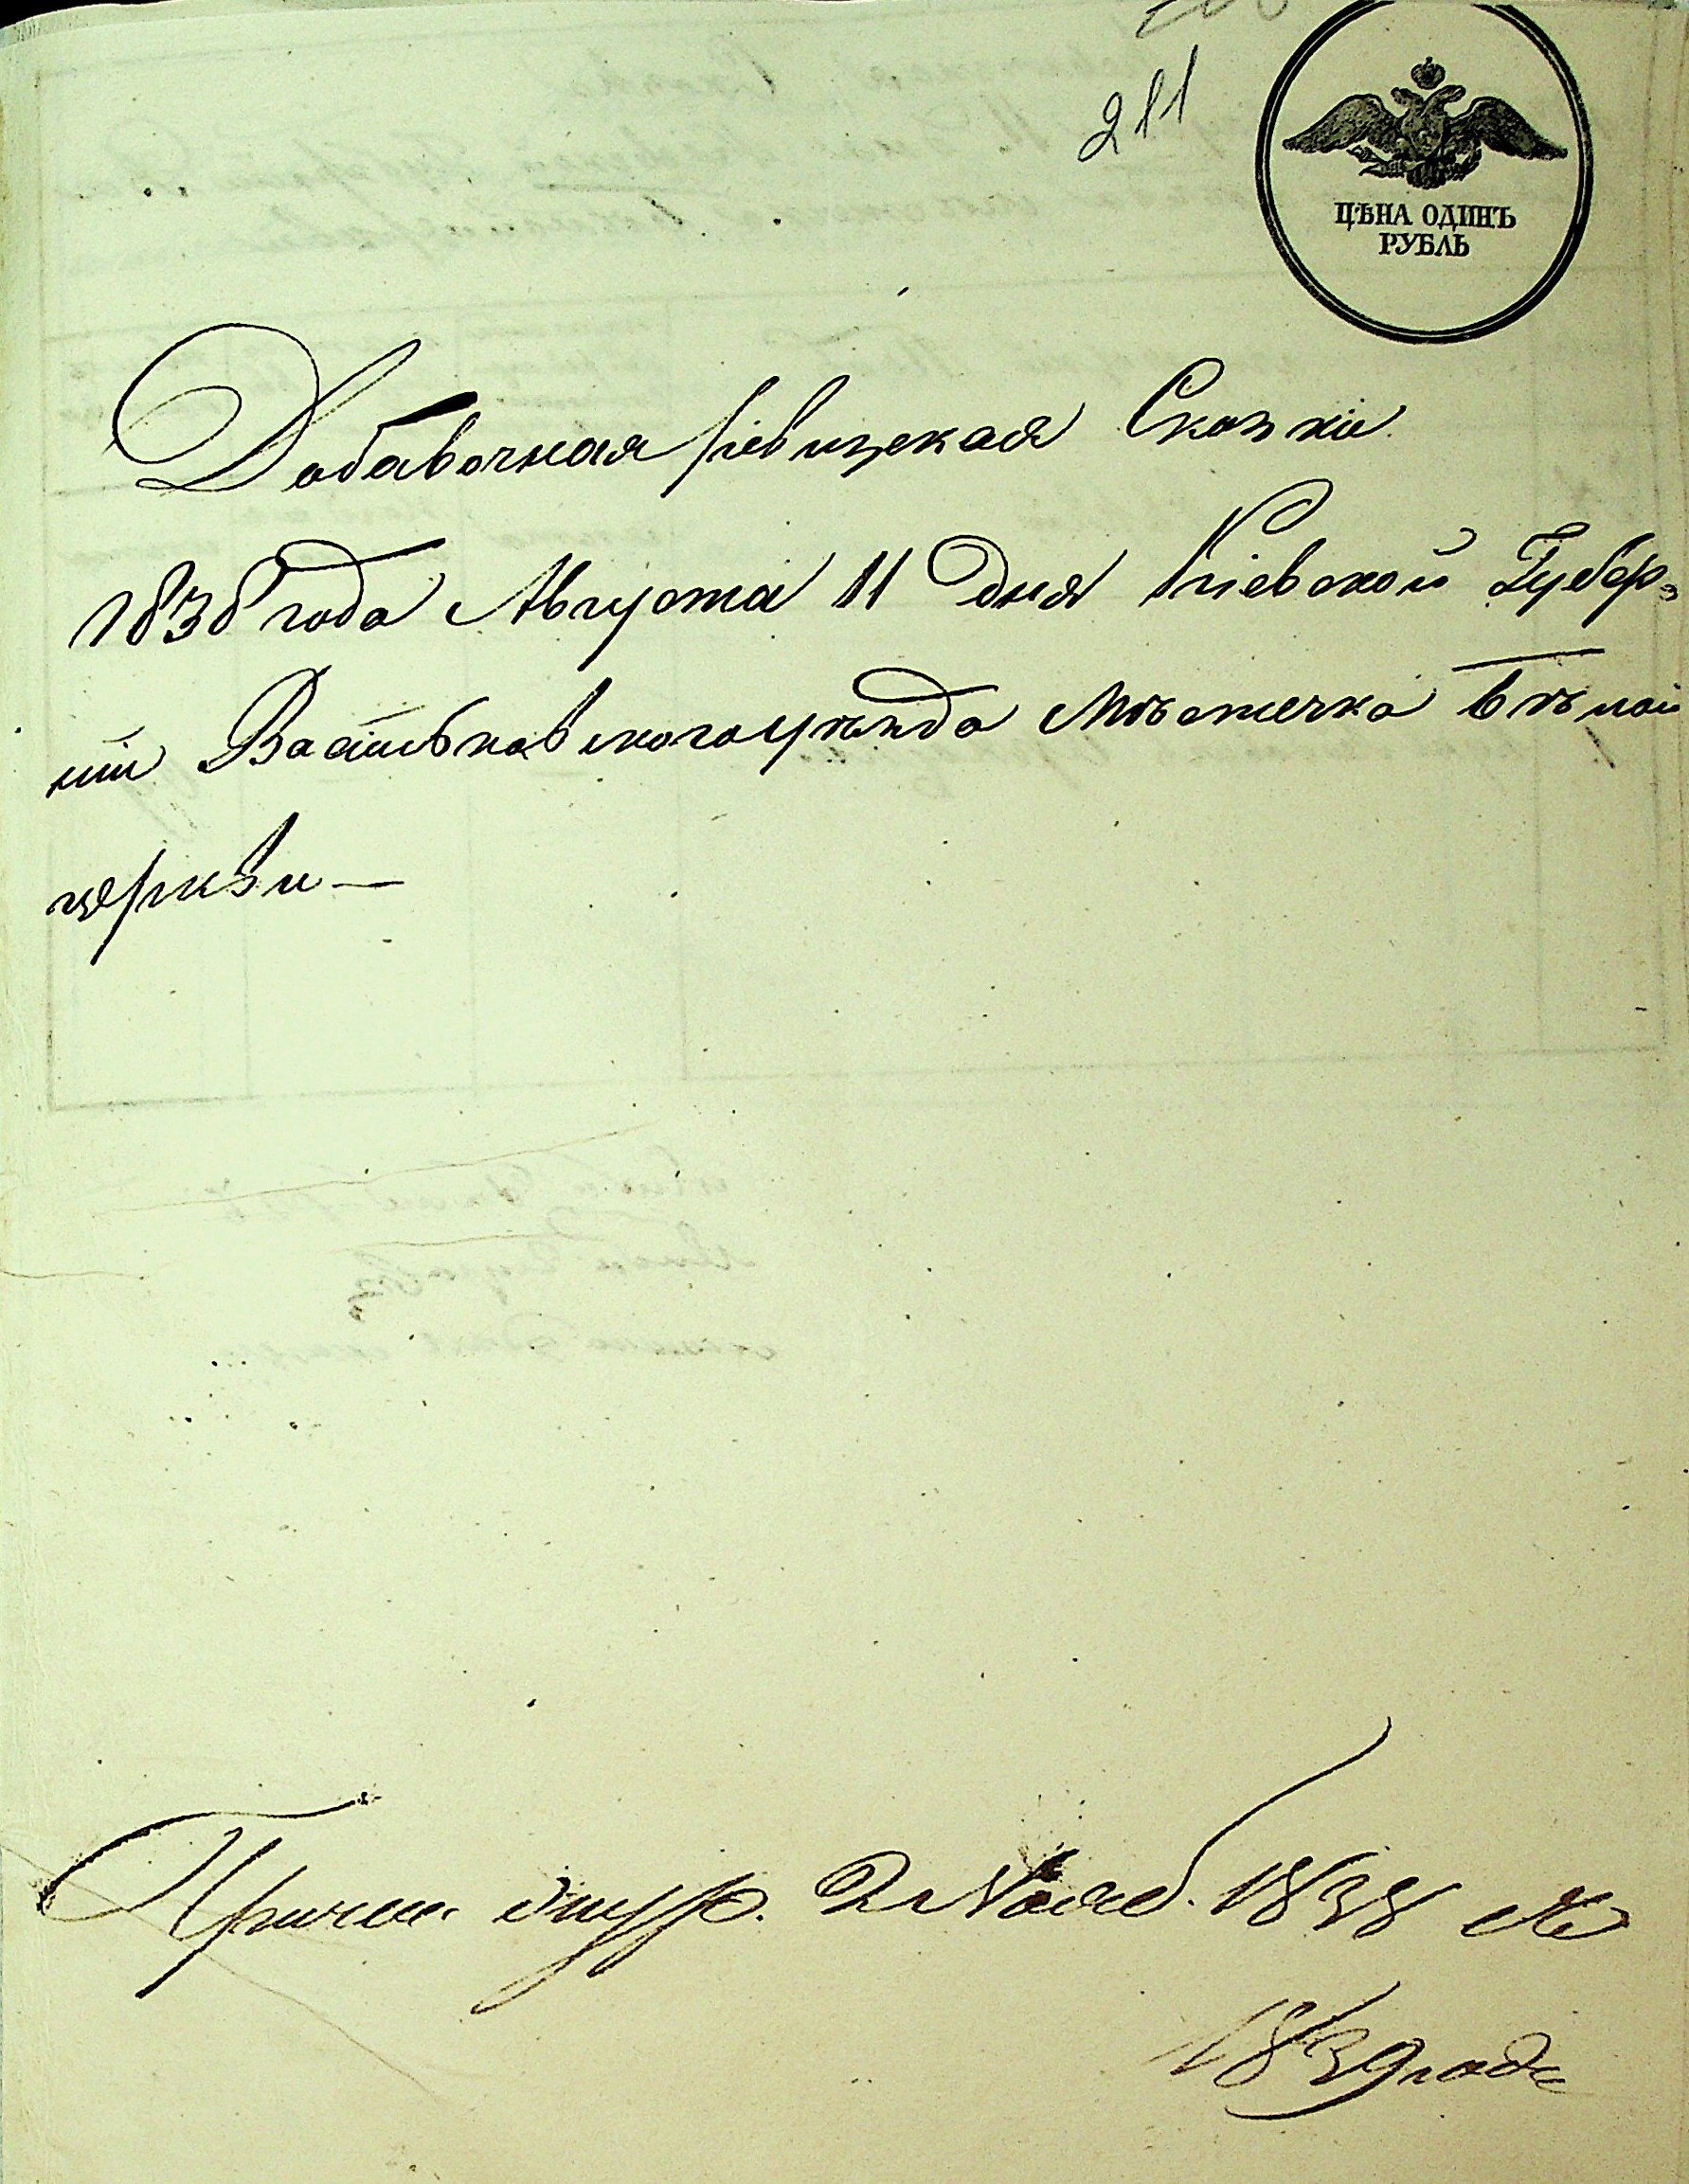 211
ЦѢНА ОДИНЪ
РУБЛЬ
Добавочная ревизская Сказка
1838 года Августа 11 Дня Кіевской Губер-
ніи Васильковского уѣзда Мѣстечка Бѣлой
церкви —
2 Нояб. 1838
1839 года